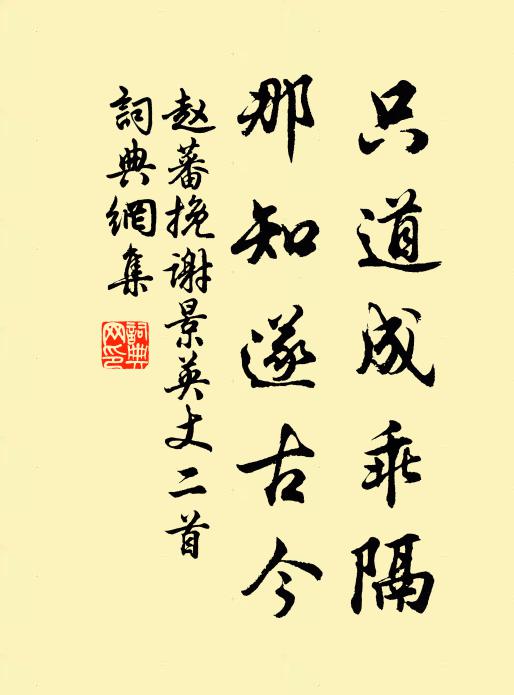 只道成乖隔
那知遂古今
赵蕃挽谢景英丈二首
詞典網集
詞典網印